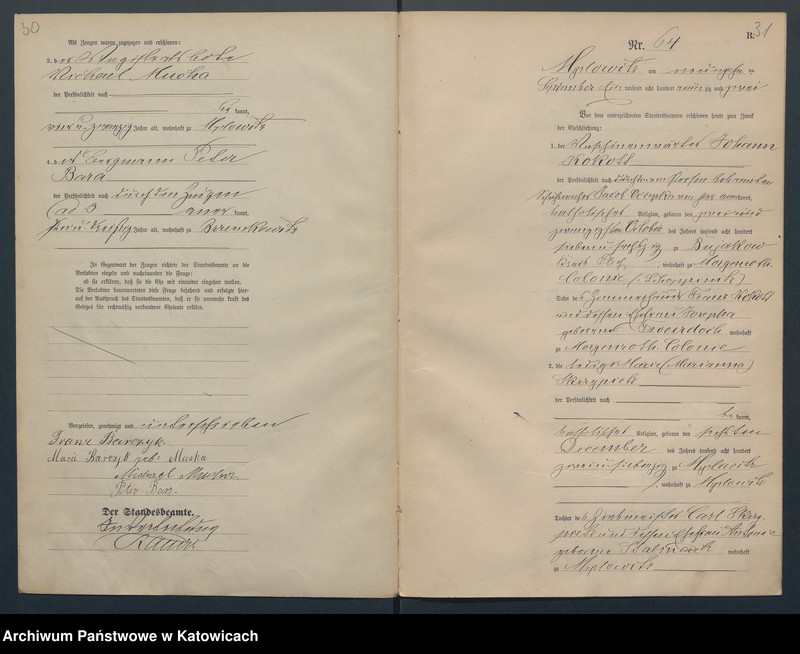 30
Als Zeugen waren zugezogen und erschienen:
3. der Magistratsbote
Michael Muska
der Persönlichkeit nach
be kannt,
vier u. zwanzig Jahre alt, wohnhaft zu Myslowitz
4. der Bergmann Peter
Bara
der Persönlichkeit nach durch den Zeugen
(ad 3 aner kannt,
Jahre alt, wohnhaft zu Brzenskowitz
In Gegenwart der Zeugen richtete der Standesbeamte an die
Verlobten einzeln und nacheinander die Frage:
ob sie erklären, daß sie die Ehe mit einander eingehen wollen.
Die Verlobten beantworteten diese Frage bejahend und erfolgte hier-
auf der Ausspruch des Standesbeamten, daß er sie nunmehr kraft des
Gesetzes für rechtmäßig verbundene Eheleute erkläre.
Vorgelesen, genehmigt und unterschrieben
Franz Barczyk.
Maria Barczyk geb. Muska
Michael Muska.
Peter Bara.
Der Standesbeamte.
In Vertretung
B.
31
Nr. 64
Myslowitz am neunzehn ten
September Ein tausend acht hundert neun zig und zwei
Vor dem unterzeichneten Standesbeamten erschienen heute zum Zweck
der Eheschließung:
1. der Maschinenwärter Johann
Kokott
der Persönlichkeit nach durch den von Person bekannten
Jacob aner kannt,
katholischer Religion, geboren den zwei und
zwanzigsten October des Jahres tausend acht hundert
sieben u. sechszig zu Bujakow
Kreis , wohnhaft zu Morgenroth
Colonie
Sohn des Franz Kokott
und dessen Ehefrau Josepha
geborene Twardoch wohnhaft
zu Morgenroth Colonie
2. die ledige Marie (Marianna)
Skrzypietz
der Persönlichkeit nach
be kannt,
katholischer Religion, geboren den sechsten
December des Jahres tausend acht hundert
zwei u. siebenzig zu Myslowitz
, wohnhaft zu Myslowitz
Tochter des Carl Skrzy-
pietz und dessen Ehefrau Antonie
geborene wohnhaft
zu Myslowitz
Archiwum Państwowe w Katowicach